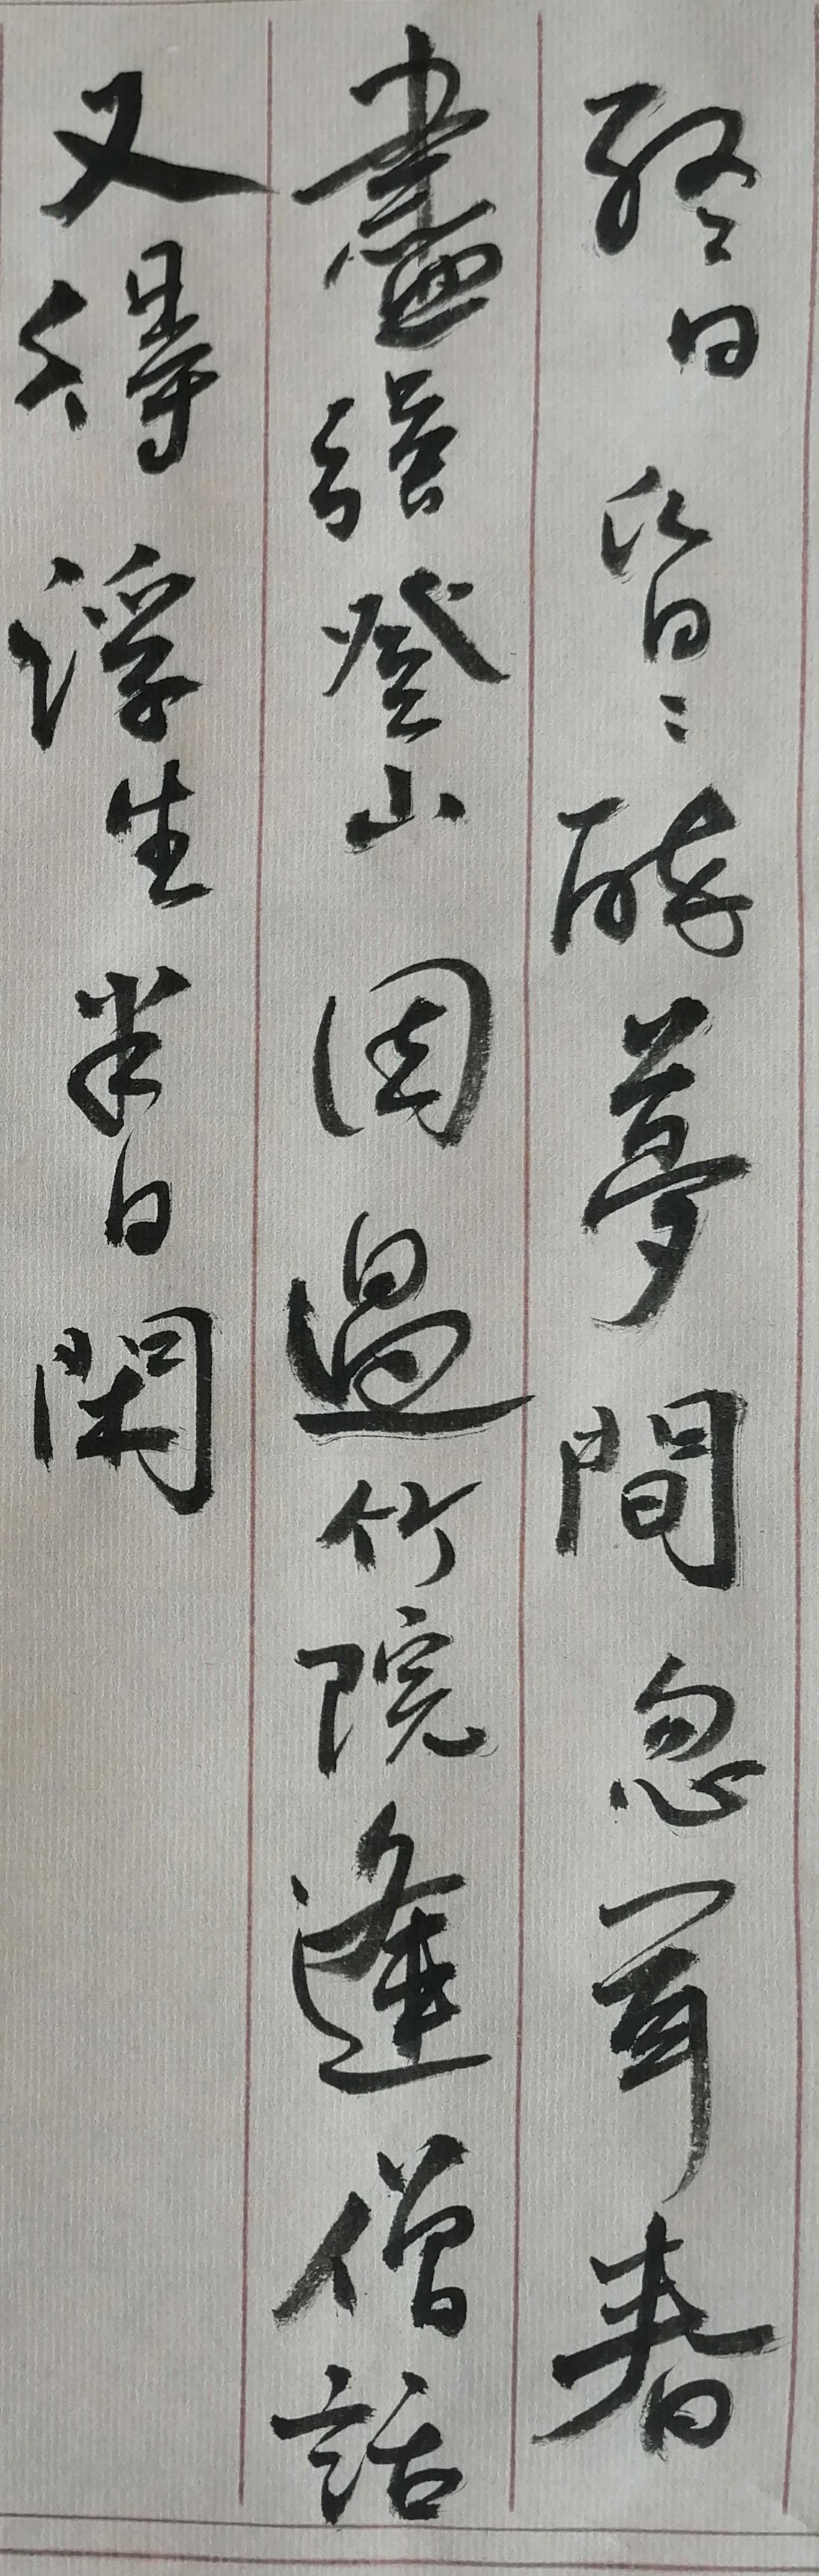 終日昏〻醉夢間忽聞春
盡強登山因過竹院逢僧話
又得浮生半日閑